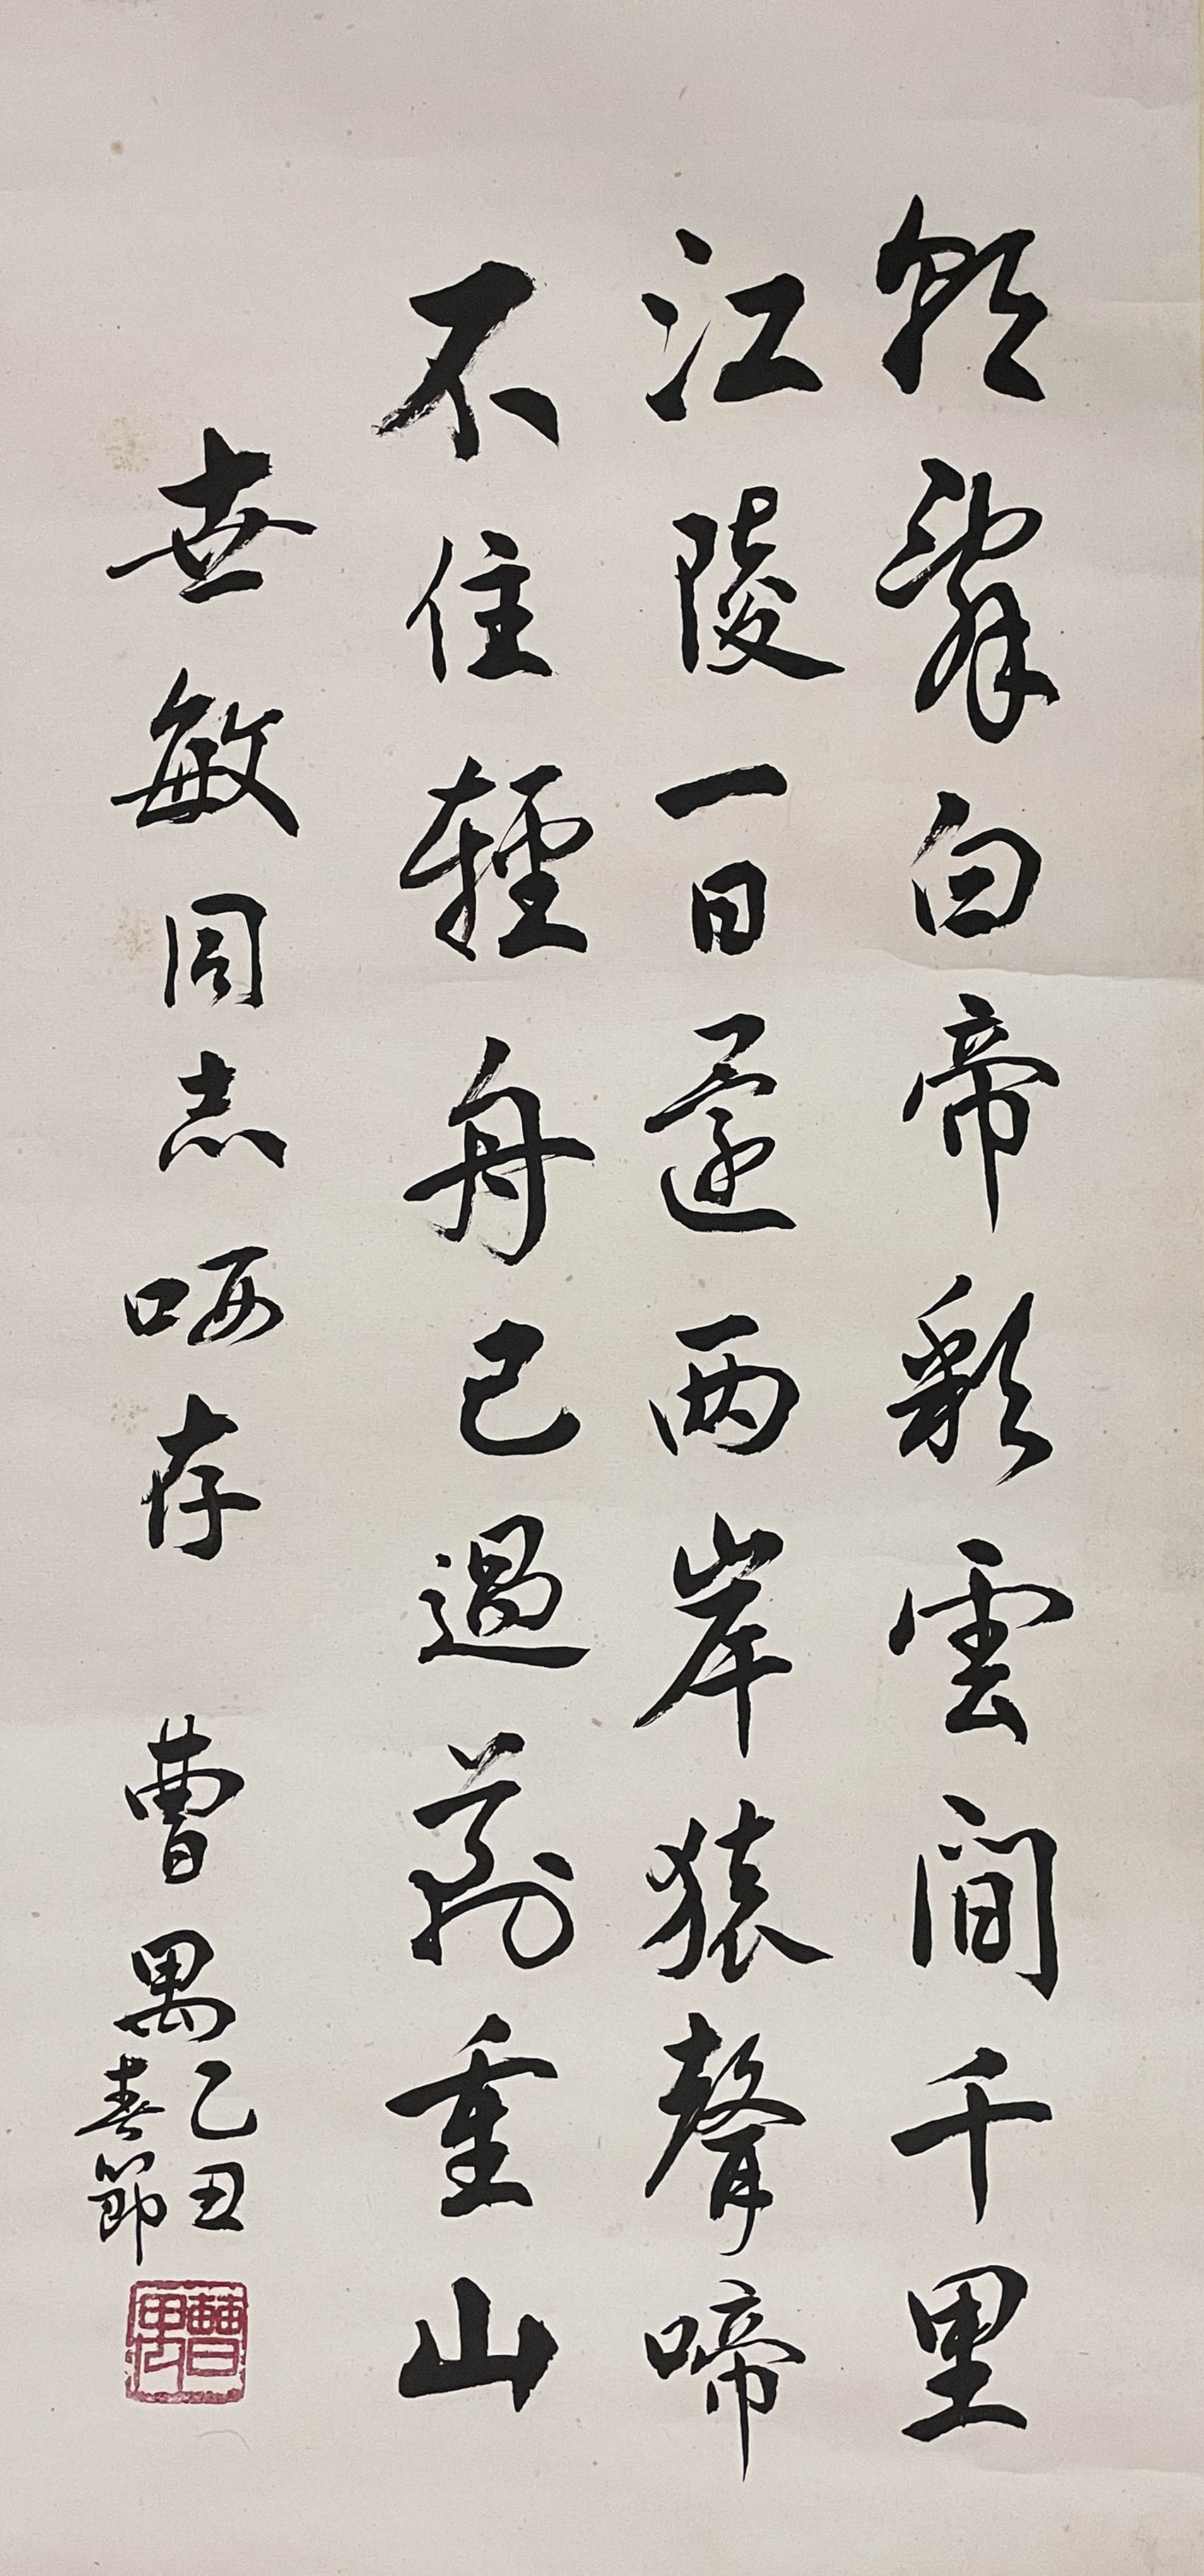 朝辭白帝彩雲間千里
江陵一日還兩岸猿聲啼
不住輕舟已過萬重山
世敏同志哂存 曹禺
乙丑
春節
曹禺